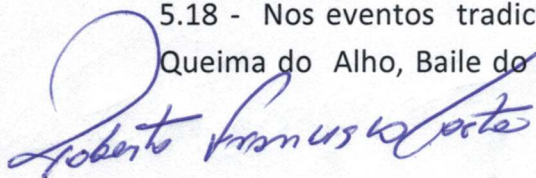 5.18 - Nos eventos tradic
Queima do Alho, Baile do
Roberto Francisco Costa